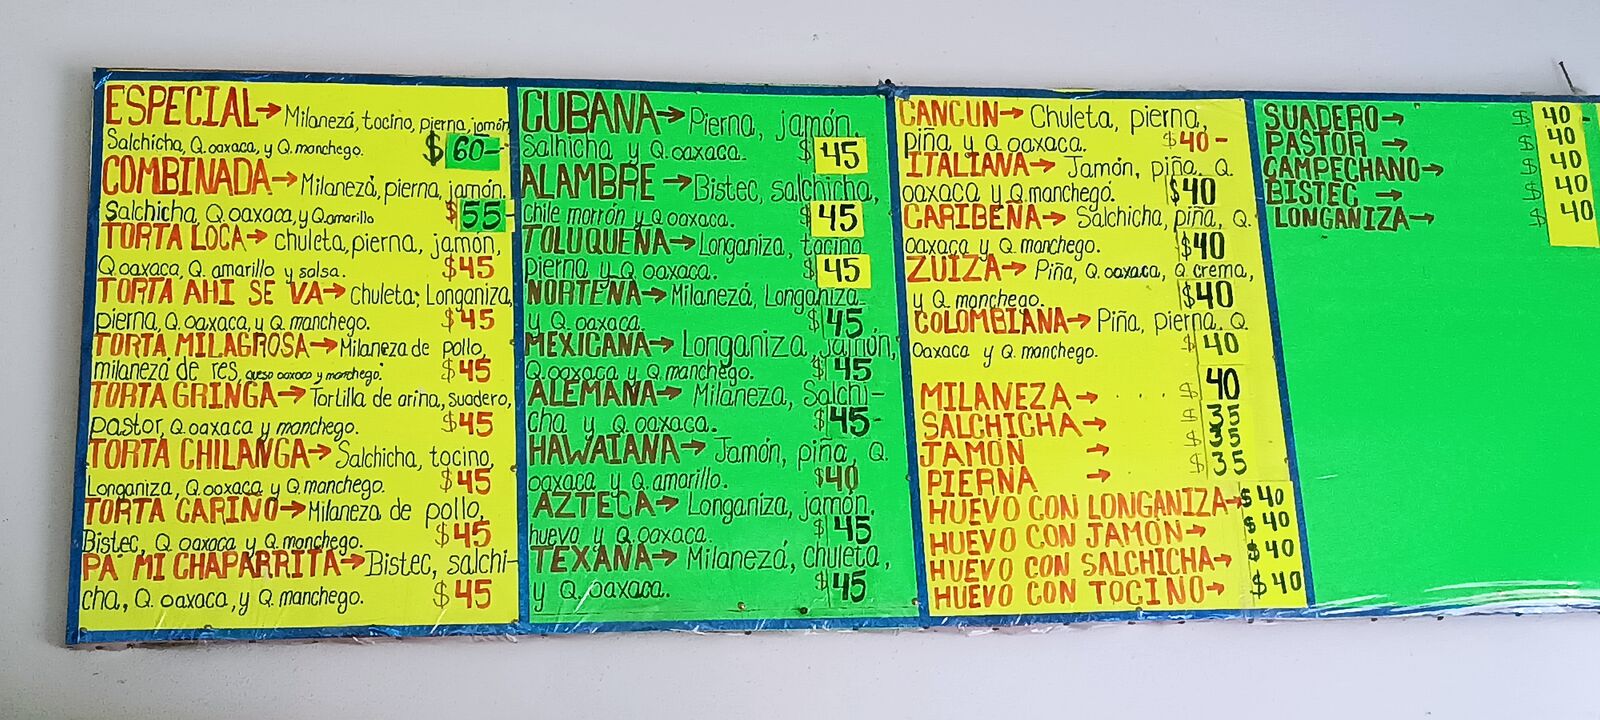 ESPECIAL→ Milanezá, tocino, pierna, jamón,
Salchicha, Q. oaxaca, y Q. manchego. $60-
COMBINADA→ Milanezá, pierna, jamón,
Salchicha, Q. oaxaca, y Q. amarillo $55-
TORTA LOCA→ chuleta, pierna, jamón,
Q. oaxaca, Q. amarillo y salsa. $45
TORTA AHI SE VA→ Chuleta, Longaniza,
pierna, Q. oaxaca, y Q. manchego. $45
TORTA MILAGROSA→ Milaneza de pollo,
milaneza de res, queso oaxaca y manchego. $45
TORTA GRINGA→ Tortilla de arina, suadero,
pastor, Q. oaxaca y manchego. $45
TORTA CHILANGA→ Salchicha, tocino,
Longaniza, Q. oaxaca y Q. manchego. $45
TORTA CARIÑO→ Milaneza de pollo,
Bistec, Q. oaxaca y Q. manchego. $45
PA' MI CHAPARRITA→ Bistec, salchi-
cha, Q. oaxaca, y Q. manchego. $45
CUBANA→ Pierna, jamón,
Salhicha y Q. oaxaca. $45
ALAMBRE→ Bistec, salchicha,
chile morrón y Q. oaxaca. $45
TOLUQUEÑA→ Longaniza, tocino
pierna y Q. oaxaca. $45
NORTEÑA→ Milanezá, Longaniza
y Q. oaxaca. $45
MEXICANA→ Longaniza, jamón,
Q. oaxaca y Q. manchego. $45
ALEMANA→ Milaneza, Salchi-
cha y Q. oaxaca. $45-
HAWAIANA→ Jamón, piña, Q.
oaxaca y Q. amarillo. $40
AZTECA→ Longaniza, jamón,
huevo y Q. oaxaca. $45
TEXANA→ Milanezá, chuleta,
y Q. oaxaca. $45
CANCUN→ Chuleta, pierna,
piña y Q. oaxaca. $40-
ITALIANA→ Jamón, piña, Q.
oaxaca y Q. manchego. $40
CARIBEÑA→ Salchicha, piña, Q.
oaxaca y Q. manchego. $40
ZUIZA→ Piña, Q. oaxaca, Q. crema,
y Q. manchego. $40
COLOMBIANA→ Piña, pierna, Q.
Oaxaca y Q. manchego. $40
MILANEZA→ .... $40
SALCHICHA→ $35
JAMÓN→ $35
PIERNA→ $35
HUEVO CON LONGANIZA→ $40
HUEVO CON JAMÓN→ $40
HUEVO CON SALCHICHA→ $40
HUEVO CON TOCINO→ $40
SUADERO→ $40-
PASTOR→ $40
CAMPECHANO→ $40
BISTEC→ $40
LONGANIZA→ $40